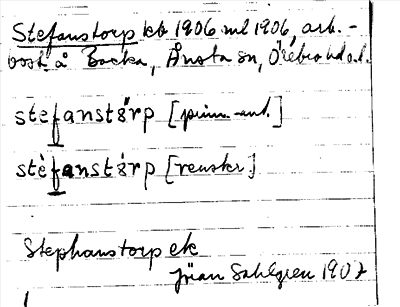 Stefanstorp kb 1906 ml 1906, arb.-
bost. å Backa, Ånsta sn, Örebro hd o. l.
stefanstȯrp [prim.-ant.]
stèfanstȯrp [renskr.]
Stephanstorp ek
Jöran Sahlgren 1907